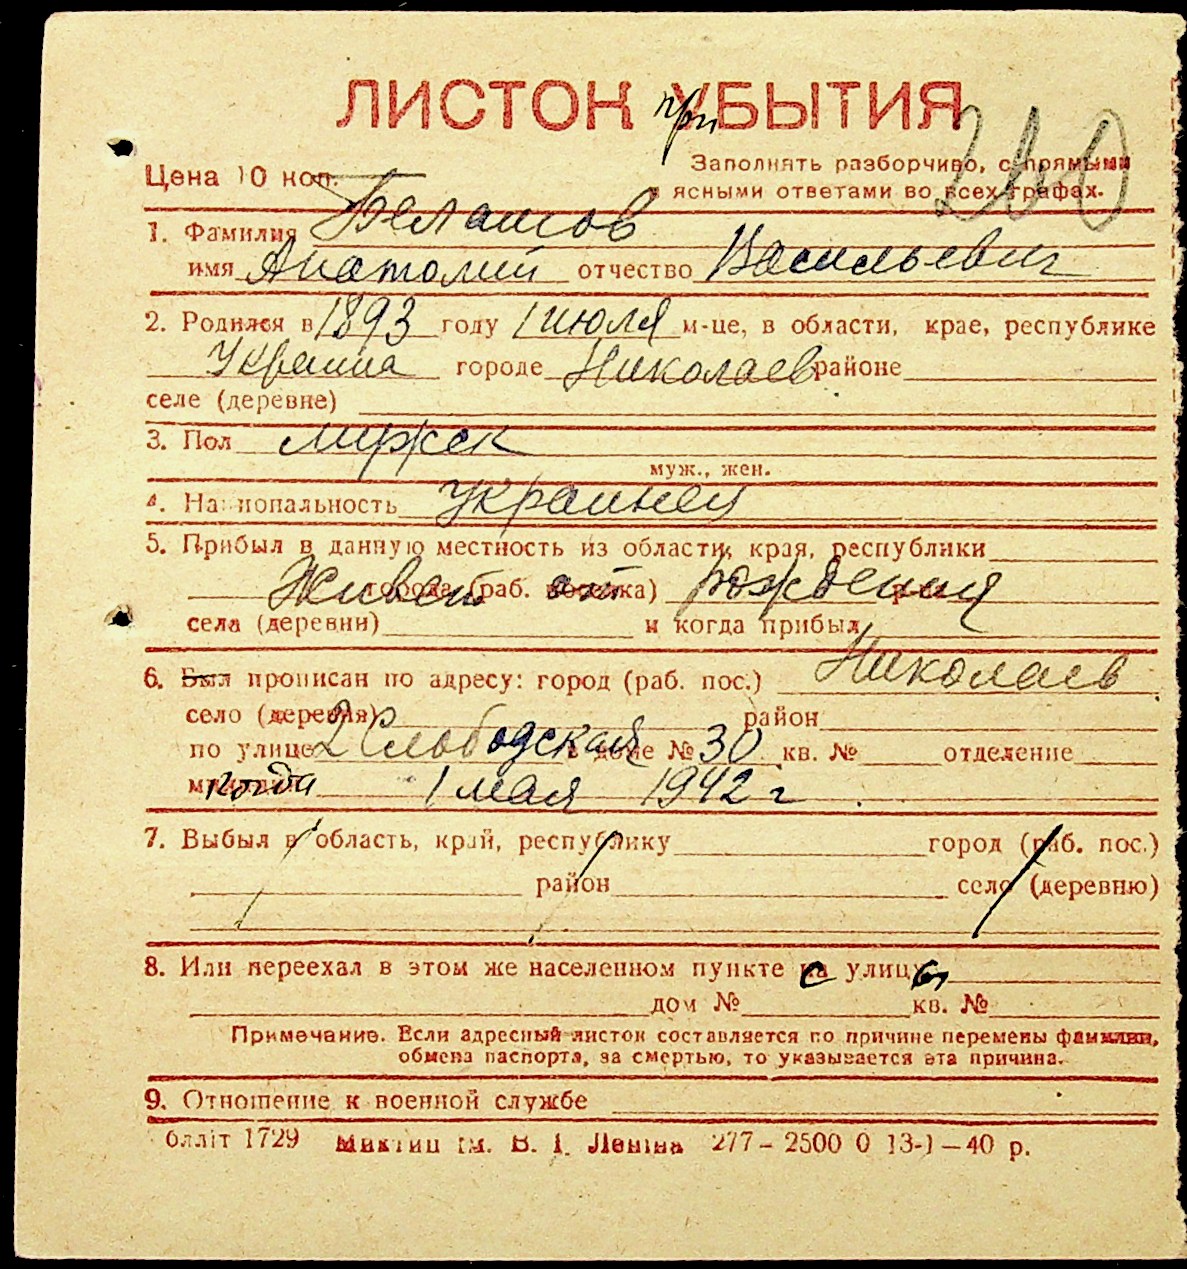 ЛИСТОК при УБЫТИЯ
200
Цена 10 коп.
Заполнять разборчиво, с прямыми
и ясными ответами во всех графах.
1. Фамилия Белашов
имя Анатолий отчество Васильевич
2. Родился в 1893 году 1 июля м-це, в области, крае, республике
Украина городе Николаев районе
селе (деревне)
3. Пол мужск
муж., жен.
4. Национальность украинец
5. Прибыл в данную местность из области, края, республики
города (раб. поселка)
Живет от рождения
села (деревни) и когда прибыл
6. Был прописан по адресу: город (раб. пос.) Николаев
село (деревня) район
по улице 2 Слободская в доме № 30 кв. № отделение
милиции когда 1 мая 1942 г.
7. Выбыл в область, край, республику город (раб. пос.)
район село (деревню)
8. Или переехал в этом же населенном пункте на с улицу ы
дом № кв. №
Примечание. Если адресный листок составляется по причине перемены фамилии,
обмена паспорта, за смертью, то указывается эта причина.
9. Отношение к военной службе
блліт 1729 Миктип ім. В. І. Леніна 277 – 2500 0 13-1 – 40 р.